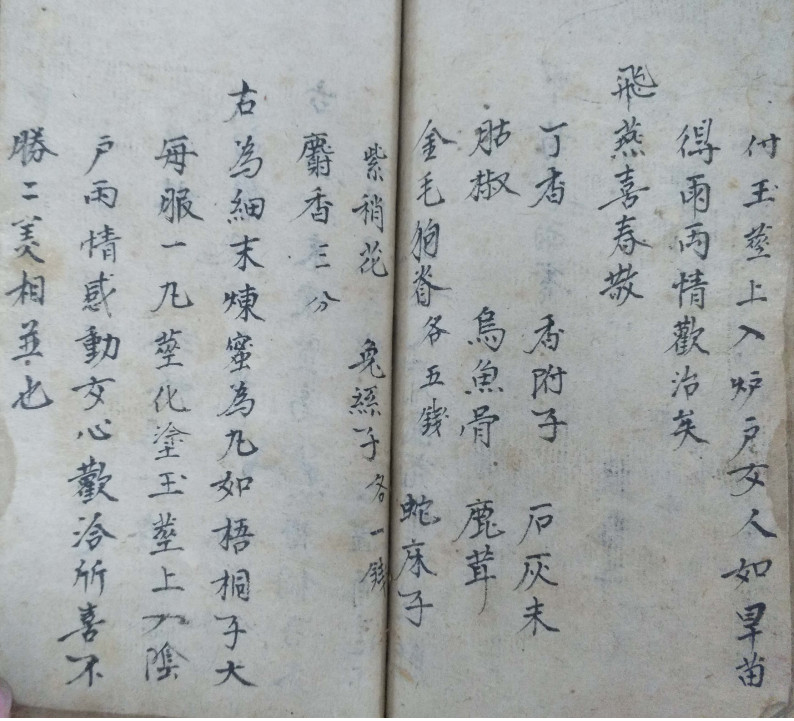 付玉莖上入炉戶女人如旱苗
得雨兩情歡洽矣
飛燕喜春散
丁香 香附子 石灰末
胡椒 烏魚骨 鹿茸
金毛狗脊各五錢 蛇床子
紫稍花 兔絲子各一錢
麝香三分
右為細末煉蜜為丸如梧桐子大
每服一丸莖化塗玉莖上入陰
戶兩情感動女心歡洽所喜不
勝二美相並也